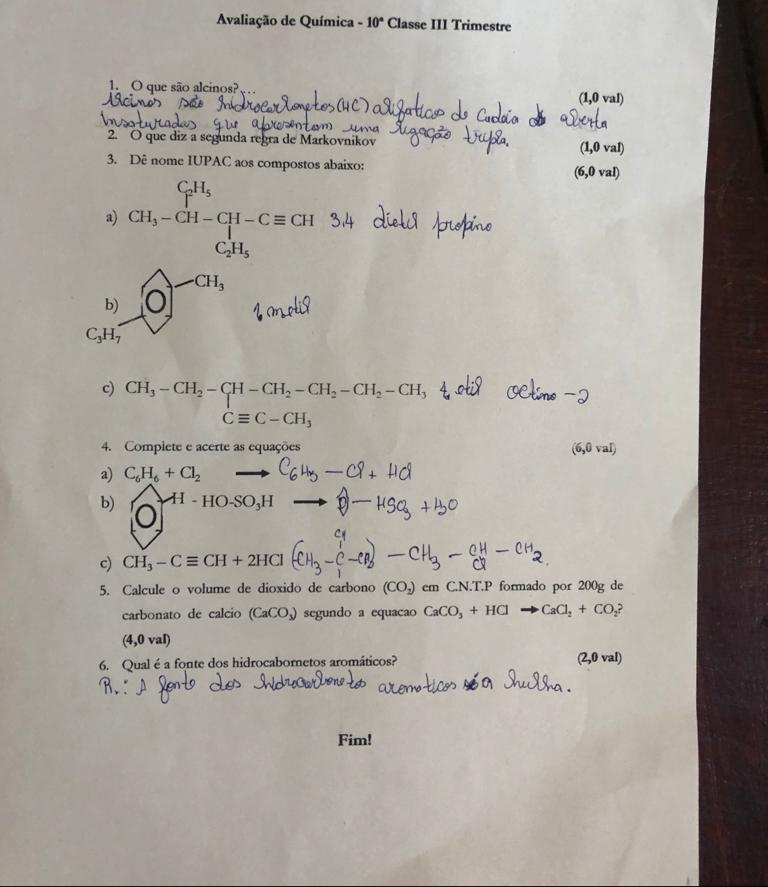 Avaliação de Química - 10ª Classe III Trimestre
1. O que são alcinos?... (1,0 val)
Alcinos são hidrocarbonetos (HC) alifaticos de Cadeia aberta
Insaturadas que apresentam uma ligação tripla.
2. O que diz a segunda regra de Markovnikov (1,0 val)
3. Dê nome IUPAC aos compostos abaixo: (6,0 val)
C₂H₅
a) CH₃ – CH – CH – C ≡ CH 3,4 dietil propino
C₂H₅
CH₃
b) 1 metil
C₃H₇
c) CH₃ – CH₂ – CH – CH₂ – CH₂ – CH₂ – CH₃ 4 etil octino -2
C ≡ C – CH₃
4. Complete e acerte as equações (6,0 val)
a) C₆H₆ + Cl₂ ⟶ C₆H₅ – Cl + HCl
b) H - HO-SO₃H ⟶ – HSO₃ + H₂O
c) CH₃ – C ≡ CH + 2HCl (CH₃ – C – – CH₃ – CH – CH₂
Cl
5. Calcule o volume de dioxido de carbono (CO₂) em C.N.T.P formado por 200g de
carbonato de calcio (CaCO₃) segundo a equacao CaCO₃ + HCl ⟶ CaCl₂ + CO₂?
(4,0 val)
6. Qual é a fonte dos hidrocabornetos aromáticos? (2,0 val)
R.: A fonte dos hidrocarbonetos aromaticos é a hulha.
Fim!